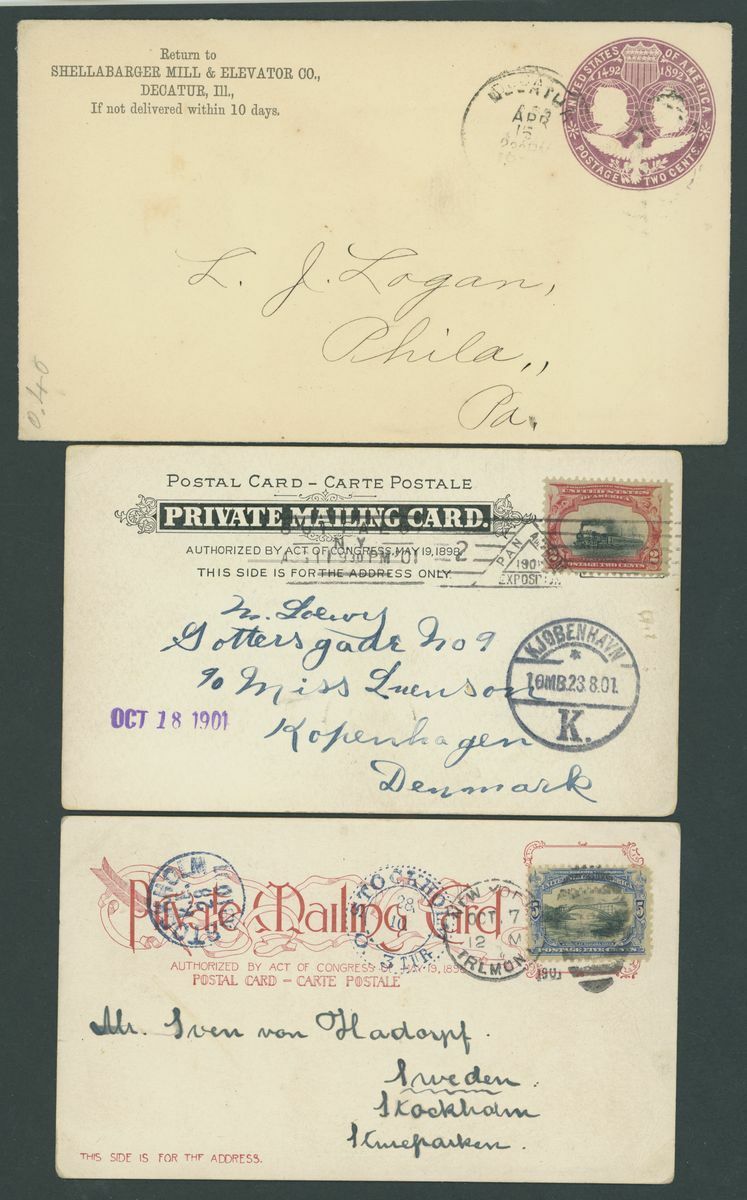 Return to
SHELLABARGER MILL & ELEVATOR CO.,
DECATUR, Ill.,
If not delivered within 10 days.
DECATUR
APR
15
UNITED STATES OF AMERICA
1492 1892
POSTAGE TWO CENTS
L. J. Logan,
Phila,,
Pa.
0.40
POSTAL CARD – CARTE POSTALE
PRIVATE MAILING CARD.
AUTHORIZED BY ACT OF CONGRESS, MAY 19, 1898
THIS SIDE IS FOR THE ADDRESS ONLY
BUFFALO
N.Y.
9 30 PM 01
2
PAN
1901
EXPOSITION
UNITED STATES
OF AMERICA
2 2
POSTAGE TWO CENTS
M. Loewy
Gottersgade No 9
c/o Miss Luenson
Kopenhagen
Denmark
OCT 18 1901
KJØBENHAVN
*
10MB.23.8.01
K.
Private Mailing Card
AUTHORIZED BY ACT OF CONGRESS OF MAY 19, 1898
POSTAL CARD – CARTE POSTALE
STOCKHOLM
28
STOCKHOLM
28
10
3 TUR
NEW YORK
OCT 7
12 M
1901
TREMONT
5 5
POSTAGE FIVE CENTS
Mr. Sven von Hadorpf.
Sweden.
Stockholm
Stureparken.
THIS SIDE IS FOR THE ADDRESS.